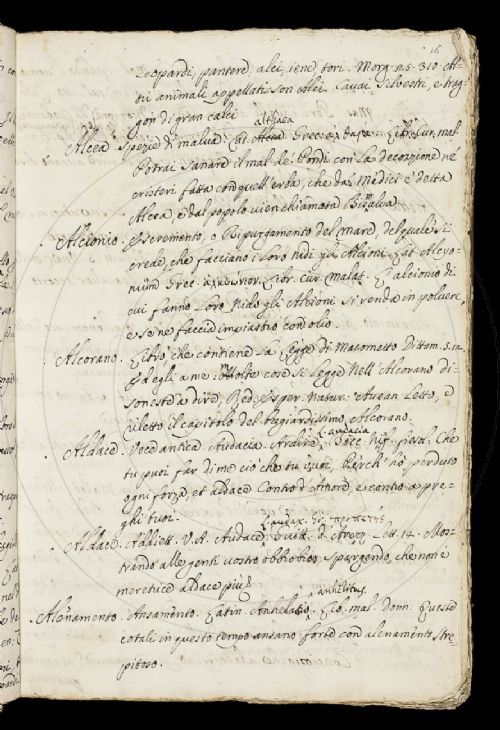 16
Leopardi, pantere, alci, iene, tori. Morg. n.s. 310. Al-
tri animali appellati son alci Cavai silvestri, e brag-
gon di gran calci
althaea
Alcea Spezie di malva. Lat. Alcea Grec. Libr. Cur. mal.
Potrai sanare il mal de Pondi con la decozione ne
cristeri fatta con quell' erba, che dal Medici è detta
Alcea e dal popolo vien chiamata Bismalva
Alcionio. Escremento, o Ripurgamento del mare, del quale si
crede, che facciano i loro nidi gli Alcioni. Lat. Alcyo-
nium Grec. ἀλκυώνιον. Libr. cur. malat. L' alcionio di
cui fanno loro nido gli Alcioni si renda in polvere,
e se ne faccia impiastro con olio.
Alcorano. Libro, che contiene la Legge di Macometto Dittam. 5. 12
Ed egli a me: Molte cose si legge Nell' Alcorano di-
soneste a dire, Red. Esper. Natur. Avean letto, e
riletto il capitolo del bugiardissimo Alcorano.
audacia
Aldace. Voce antica. Audacia Ardire. Bocc. Che
tu puoi far di me ciò che tu vuoi, Perch' ho perduto
ogni forza, et aldace Contro d' Amore, e contro a pre-
ghi tuoi.
Laudax. Gr.
Aldace. Addiett. V. A. Audace. Guitt. d' Arezz. Lett. 14. Mos-
trando alle genti vostro obbrobrio spargendo, che non è
meretrice aldace più
anhilitus.
Alenamento. Ansamento. Latin. Anhelatio Lib. mal. Donn. Queste
cotali in questo tempo ansano forte con alenamento stre-
pitoso.